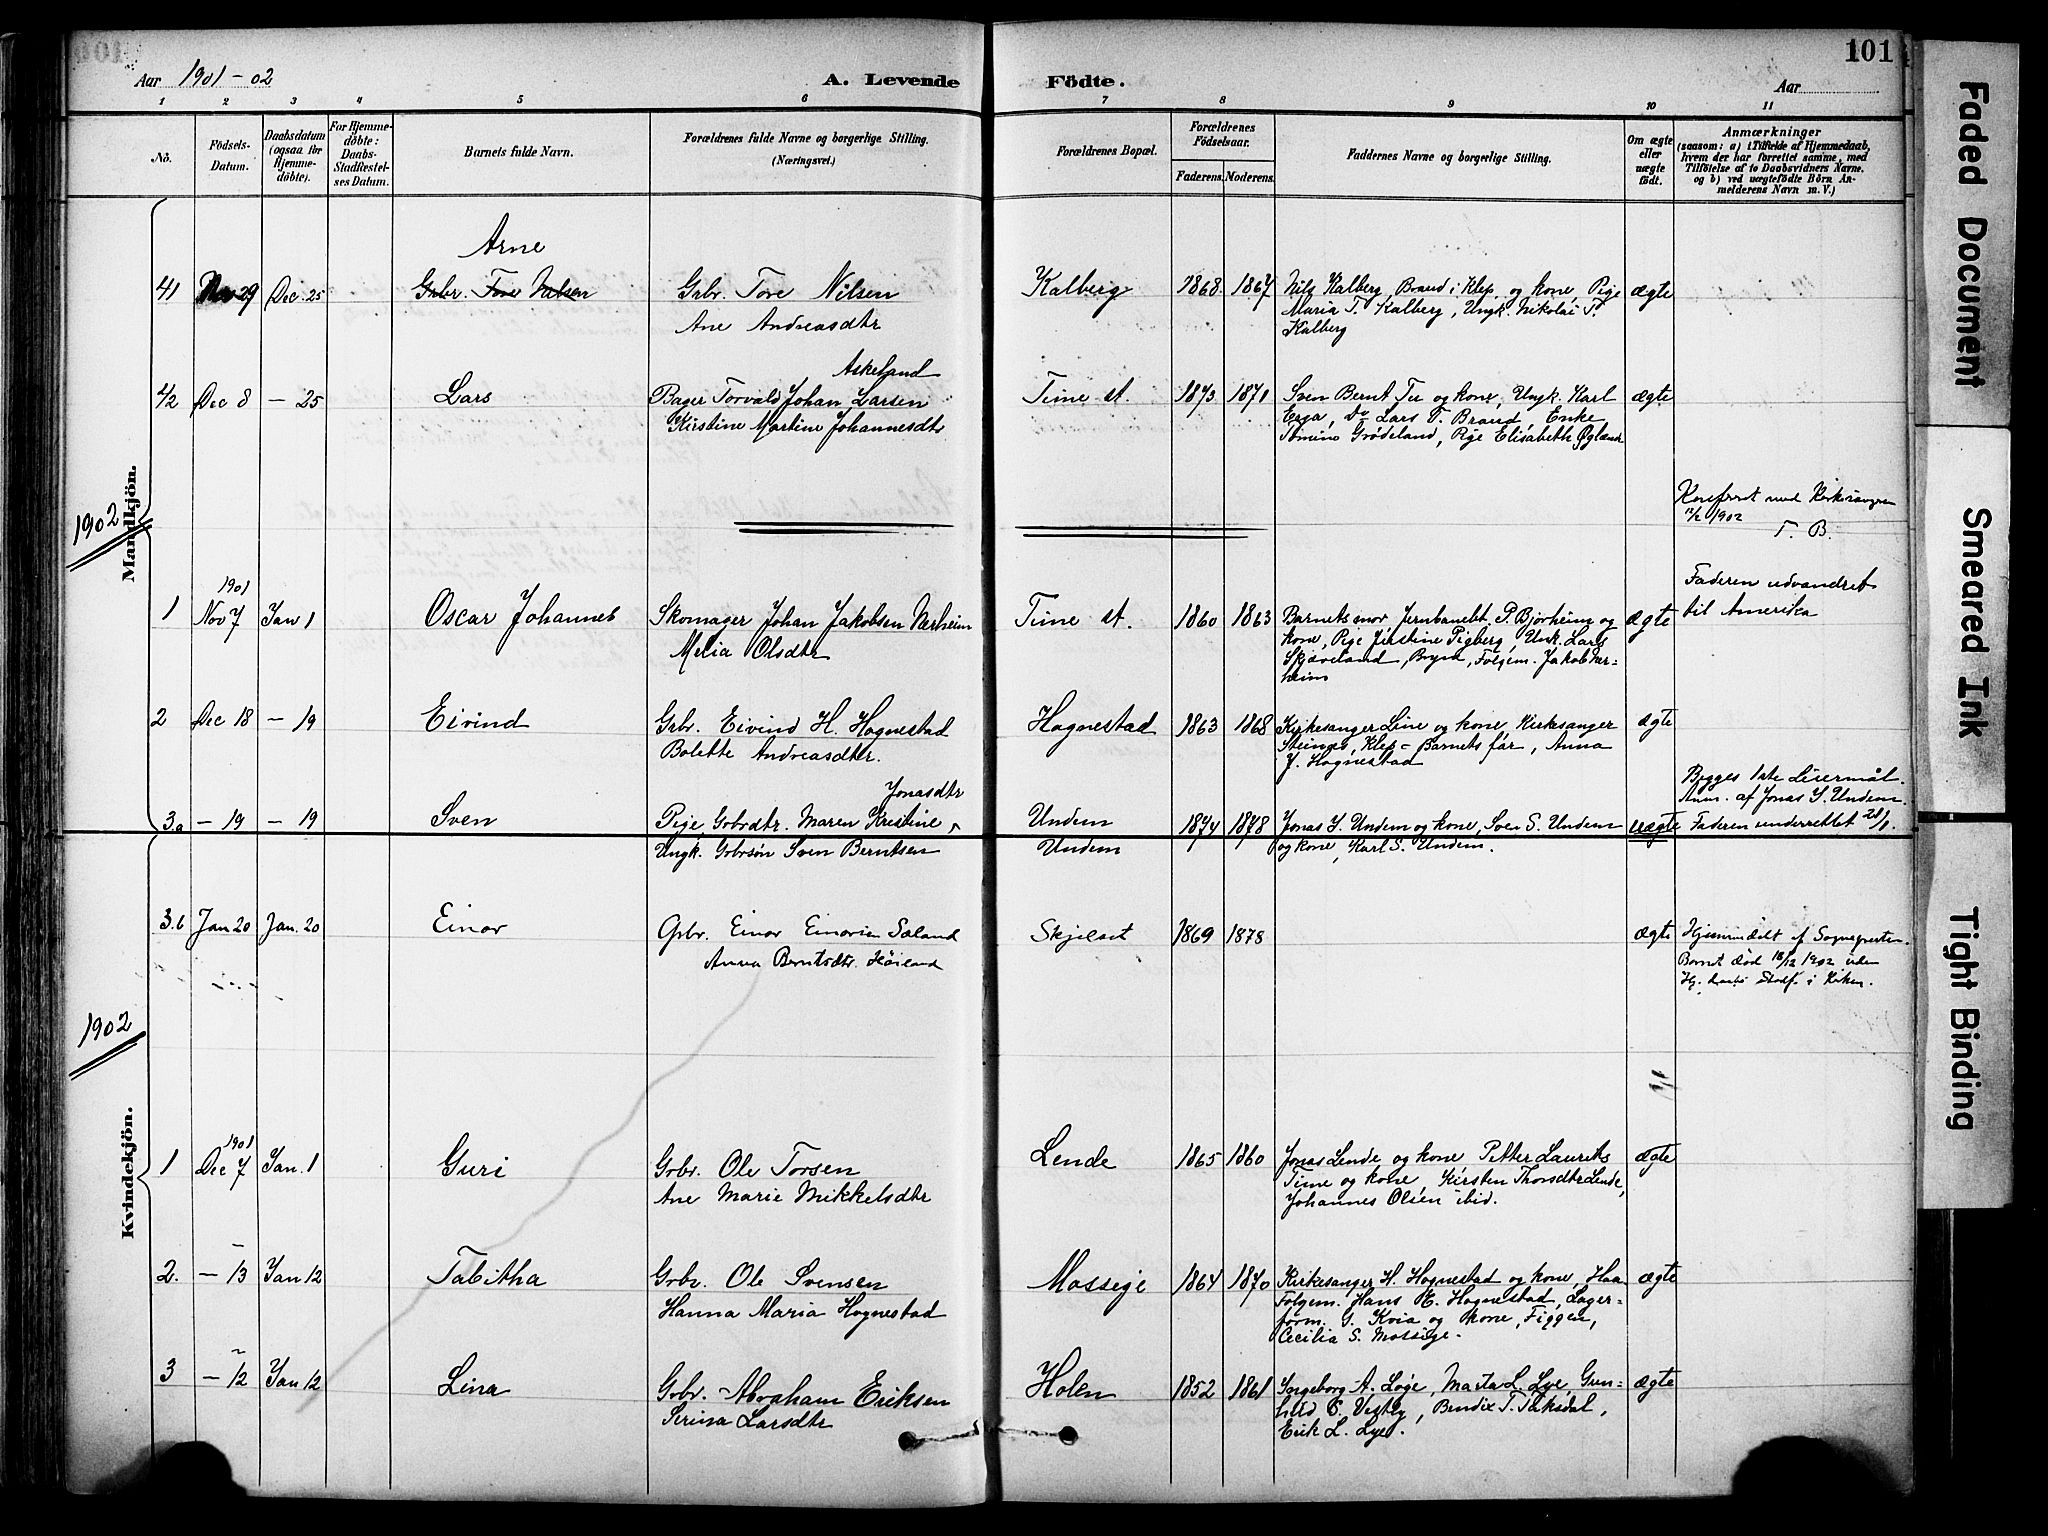 Aar 1901-02
A. Levende Födte.
101
Aar
1 2 3 4 5 6 7 8 9 10 11
No.
Födsels-Datum.
Daabsdatum (ogsaa for Hjemme-döbte).
For Hjemme-döbte: Daabs-Stadfæstel-ses Datum.
Barnets fulde Navn.
Forældrenes fulde Navne og borgerlige Stilling. (Næringsvei.)
Forældrenes Bopæl.
Forældrenes Födselsaar.
Faderens. Moderens.
Faddernes Navne og borgerlige Stilling.
Om ægte eller uægte födt.
Anmærkninger
(saasom: a) i Tilfælde af Hjemmedaab,
hvem der har forrettet samme, med
Tilföielse af to Daabsvidners Navne,
og b) ved uægtefödte Börn An-
melderens Navn m. V.)
Mandkjön.
Arne
41 Nov 29 Dec. 25 Grbr. Tore Nilsen Grbr. Tore Nilsen Kalberg 1868 1867 Nils Kalberg, Braud i Klep, og kone, Pige ægte
Ane Andreasdtr Maria T. Kalberg, Ungk. Nikolai T.
Kalberg
Askeland
42 Dec 8 – 25 Lars Bager Torvald Johan Larsen Time st. 1873 1871 Sven Bernt Tu og kone, Ungk. Karl ægte
Kirstine Martine Johannesdtr Erga, do Lars T. Braud, Enke
Tomine Grödeland, Pige Elisabeth Öglænd
Konferert med Kirkesangeren
12/2 1902
T. B.
1902
1901
1 Nov 7 Jan 1 Oscar Johannes Skomager Johan Jakobsen Nerheim Time st. 1860 1863 Barnets mor, Jernbanebt. P. Bjorheim og ægte Faderen udvandret
Melia Olsdtr kone, Pige Jirstine Pigberg, Unk. Lars til Amerika
Skjæveland, Bryne, Folgem. Jakob Ner-
heim
2 Dec 18 – 19 Eivind Grbr. Eivind H. Hognestad Hognestad 1863 1868 Kirkesanger Line og kone, Kirkesanger ægte
Bolette Andreasdtr. Steinnes, Klep – Barnets far, Anna
J. Hognestad
Jonasdtr Begges 1ste Leiermål.
3.a – 19 – 19 Sven Pige, Grbrdtr. Maren Kristine Undem 1874 1878 Jonas S. Undem og kone, Sven S. Undem uægte Anm. af Jonas S. Undem.
Ungk. Grbrsön Sven Berntsen Undem og kone, Karl S. Undem. Faderen underrettet 21/1.
3.b Jan 20 Jan. 20 Einar Grbr. Einar Einarsen Sæland Skjelset 1869 1878 ægte Hjemmedöbt af Sognepresten.
Anna Berntsdtr. Höiland Barnet död 18/12 1902 uden
Hj. daabs Stadf. i Kirken.
1902
Kvindekjön.
1901
1 Dec 7 Jan. 1 Guri Grbr. Ole Torsen Lende 1865 1860 Jonas Lende og kone, Petter Laurits ægte
Ane Marie Mikkelsdtr Time og kone, Kirsten Thorsdtr Lende,
Johannes Olsen ibid.
2. – 13 Jan 12 Tabitha Grbr. Ole Svensen Mossige 1864 1870 Kirkesanger H. Hognestad og kone, Haa ægte
Hanna Maria Hognestad Folgem. Hans E. Hognestad, Lager-
form. G. Kvia og kone, Figgen,
Cecilia S. Mossige.
3 – 12 Jan 12 Lina Grbr. Abraham Eriksen Holen 1852 1861 Ingeborg A. Loge, Marta L. Lye, Gun- ægte
Serina Larsdtr hild E. Vestly, Bendix T. Taksdal,
Erik L. Lye.
Faded Document
Smeared Ink
Tight Binding